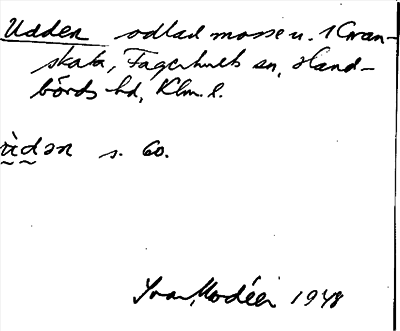 Udden odlad mosse u. Kvan-
skata, Fagerhults sn, Hand-
börds hd, Klm. l.
ùdən s. 60.
Ivar Modéer 1948